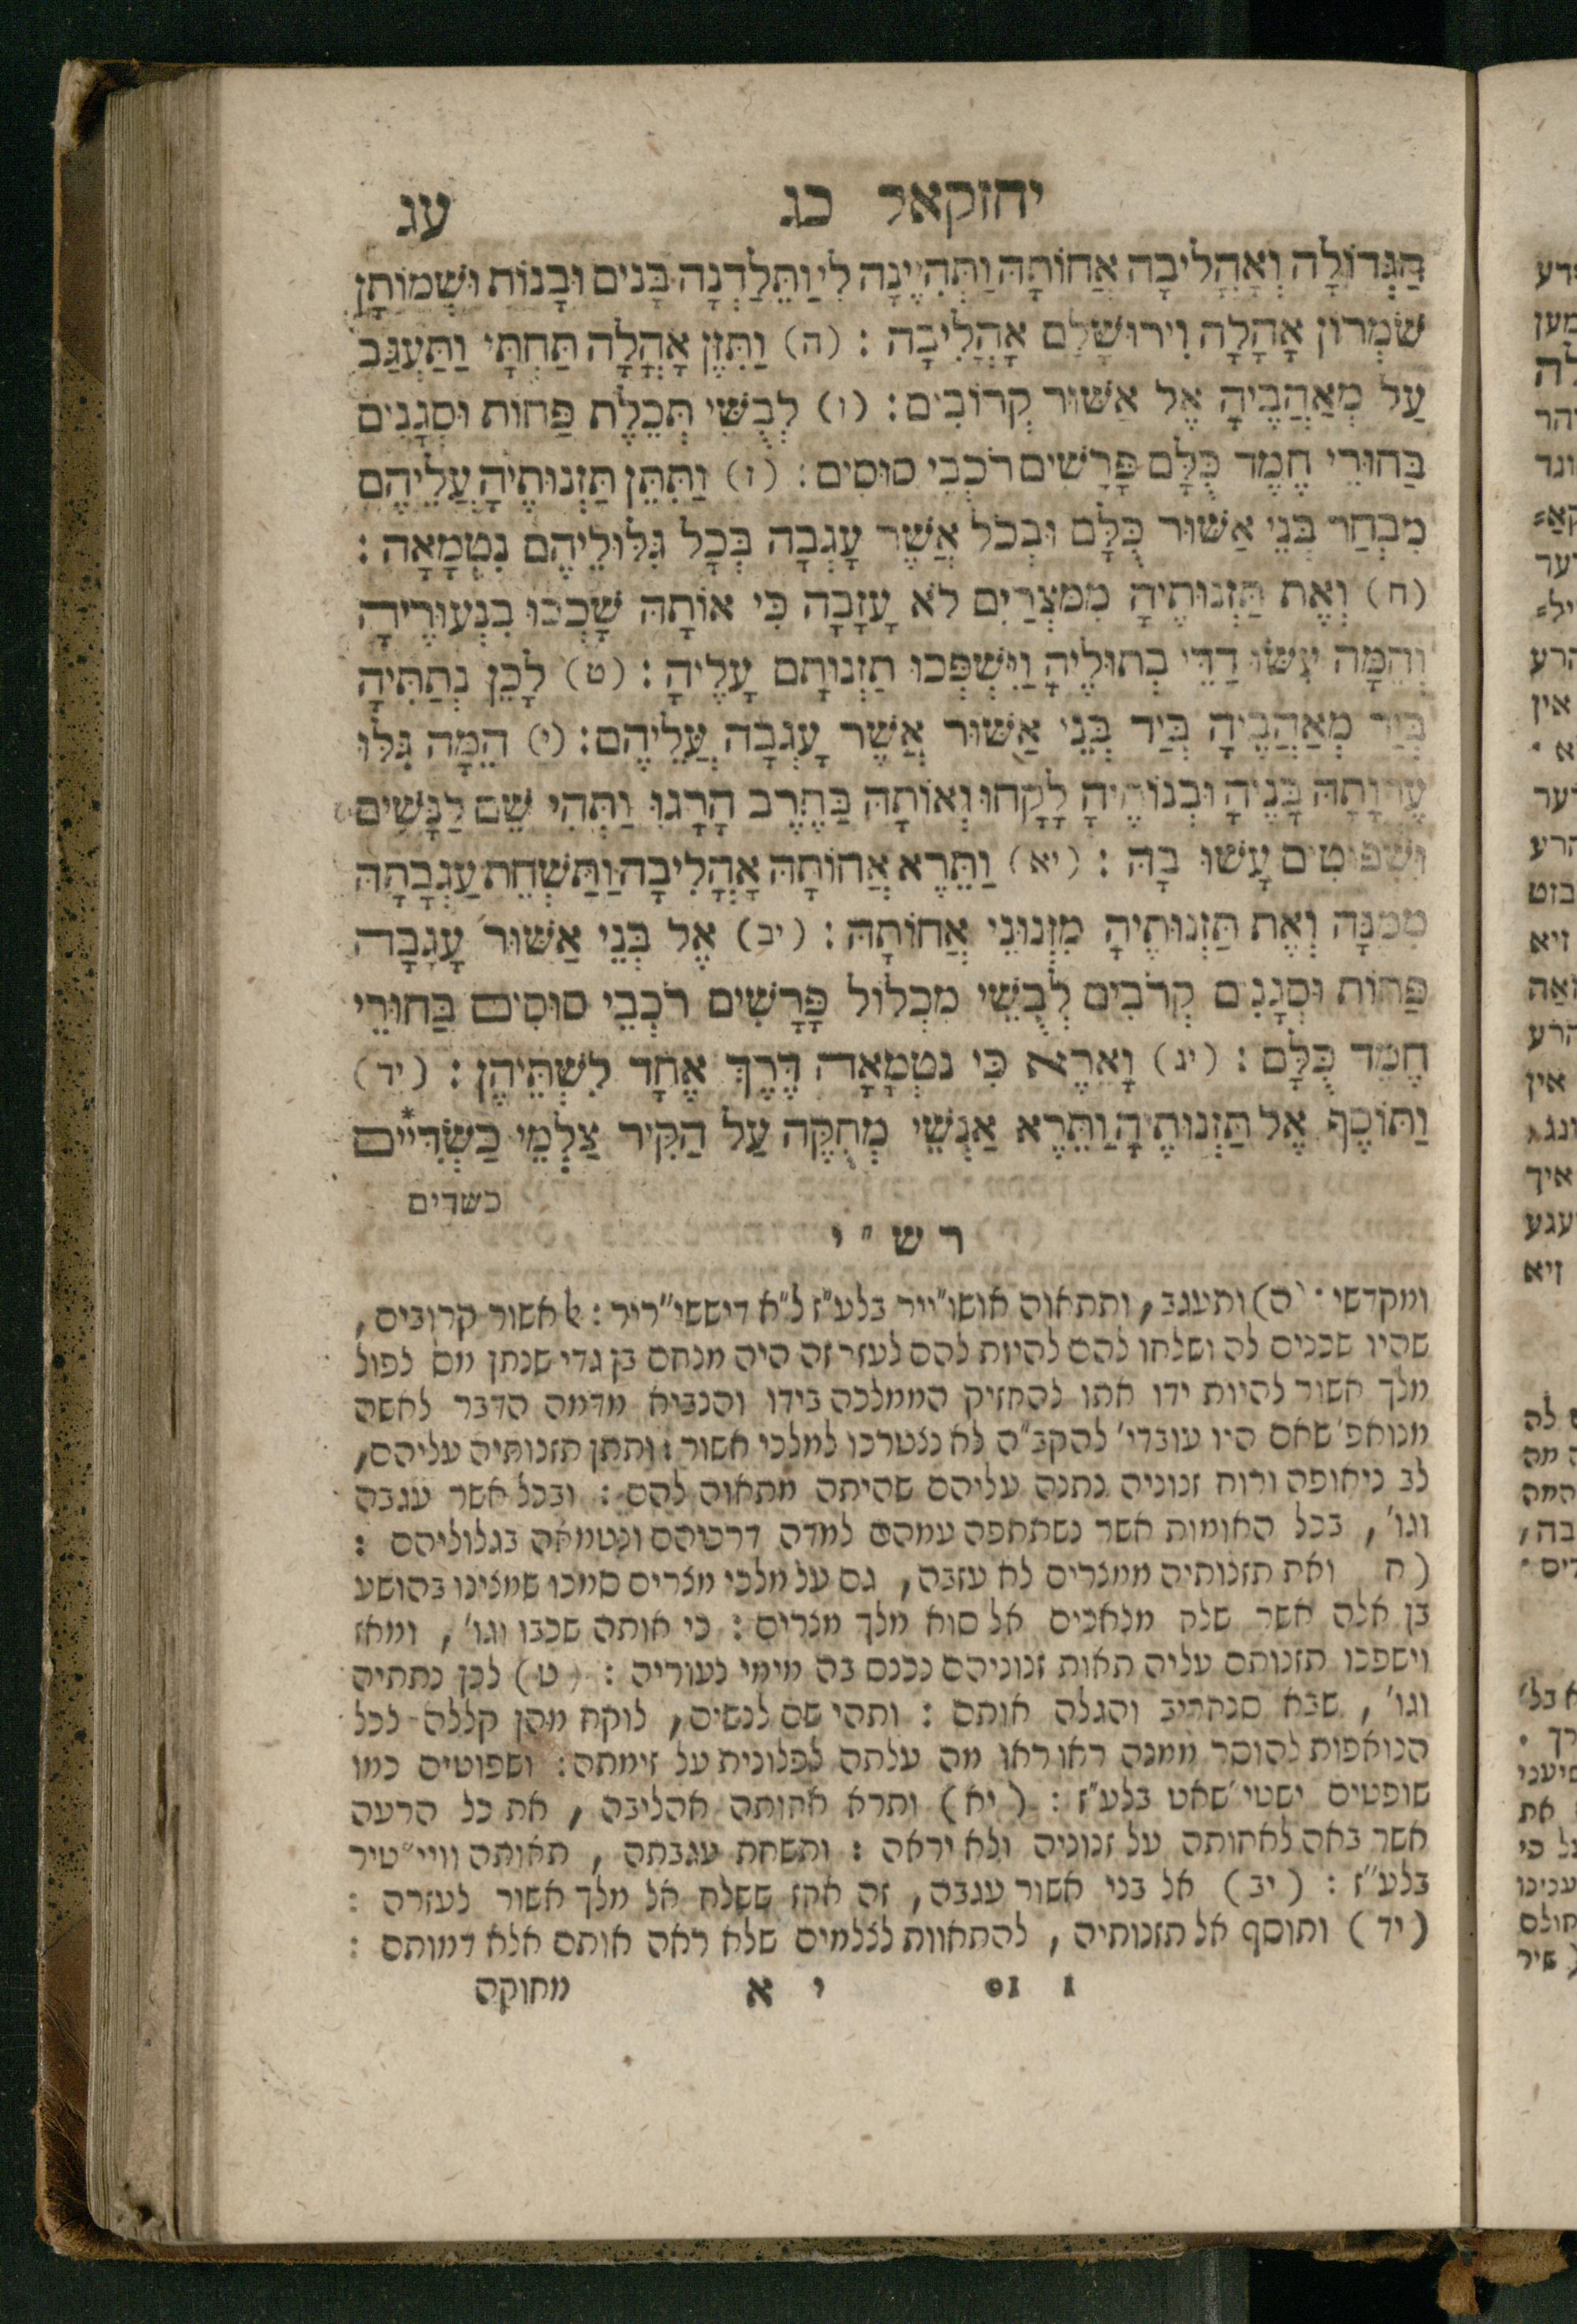 יחזקאל כג עג
הַגְּדוֹלָה וְאָהֳלִיבָה אֲחוֹתָהּ וַתִּהְיֶינָה לִי וַתֵּלַדְנָה בָּנִים וּבָנוֹת וּשְׁמוֹתָן
שֹׁמְרוֹן אָהֳלָה וִירוּשָׁלַ͏ִם אָהֳלִיבָה : (ה) וַתִּזֶן אָהֳלָה תַּחְתָּי וַתַּעְגַּב
עַל מְאַהֲבֶיהָ אֶל אַשּׁוּר קְרוֹבִים : (ו) לְבֻשֵׁי תְּכֵלֶת פַּחוֹת וּסְגָנִים
בַּחוּרֵי חֶמֶד כֻּלָּם פָּרָשִׁים רֹכְבֵי סוּסִים : (ז) וַתִּתֵּן תַּזְנוּתֶיהָ עֲלֵיהֶם
מִבְחַר בְּנֵי אַשּׁוּר כֻּלָּם וּבְכֹל אֲשֶׁר עָגְבָה בְּכָל גִּלּוּלֵיהֶם נִטְמָאָה :
(ח) וְאֶת תַּזְנוּתֶיהָ מִמִּצְרַיִם לֹא עָזָבָה כִּי אוֹתָהּ שָׁכְבוּ בִנְעוּרֶיהָ
וְהֵמָּה עִשּׂוּ דַּדֵּי בְתוּלֶיהָ וַיִּשְׁפְּכוּ תַזְנוּתָם עָלֶיהָ : (ט) לָכֵן נְתַתִּיהָ
בְּיַד מְאַהֲבֶיהָ בְּיַד בְּנֵי אַשּׁוּר אֲשֶׁר עָגְבָה עֲלֵיהֶם : (י) הֵמָּה גִּלּוּ
עֶרְוָתָהּ בָּנֶיהָ וּבְנוֹתֶיהָ לָקָחוּ וְאוֹתָהּ בַּחֶרֶב הָרָגוּ וַתְּהִי שֵׁם לַנָּשִׁים
וּשְׁפוּטִים עָשׂוּ בָהּ : (יא) וַתֵּרֶא אֲחוֹתָהּ אָהֳלִיבָה וַתַּשְׁחֵת עַגְבָתָהּ
מִמֶּנָּה וְאֶת תַּזְנוּתֶיהָ מִזְּנוּנֵי אֲחוֹתָהּ : (יב) אֶל בְּנֵי אַשּׁוּר עָגָבָה
פַּחוֹת וּסְגָנִים קְרֹבִים לְבֻשֵׁי מִכְלוֹל פָּרָשִׁים רֹכְבֵי סוּסִים בַּחוּרֵי
חֶמֶד כֻּלָּם : (יג) וָאֵרֶא כִּי נִטְמָאָה דֶּרֶךְ אֶחָד לִשְׁתֵּיהֶן : (יד)
וַתּוֹסֶף אֶל תַּזְנוּתֶיהָ וַתֵּרֶא אַנְשֵׁי מְחֻקֶּה עַל הַקִּיר צַלְמֵי כַשְׂדִּיִּים*
כשדים
רש"י
ומקדשי : (ה) ותעגב, ותתאוה אושו"ייר בלע"ז ל"א דיששי"ריר : אל אשור קרובים,
שהיו שכנים לה ושלחו להם להיות להם לעזר זה היה מנחם בן גדי שנתן מס לפול
מלך אשור להיות ידו אתו להחזיק הממלכה בידו והנביא מדמה הדבר לאשה
מנואפ' שאם היו עובדי' להקב"ה לא נצטרכו למלכי אשור : ותתן תזנותיה עליהם,
לב ניאופה ורוח זנוניה נתנה עליהם שהיתה מתאוה להם : ובכל אשר עגבה
וגו', בכל האומות אשר נשתתפה עמהם למדה דרכיהם ונטמאה בגלוליהם :
(ח ואת תזנותיה ממצרים לא עזבה, גם על מלכי מצרים סמכו שמצינו בהושע
בן אלה אשר שלח מלאכים אל סוא מלך מצרים : כי אותה שכבו וגו', ומאז
וישפכו תזנותם עליה תאות זנוניהם נכנס בה מימי נעוריה : (ט) לכן נתתיה
וגו', שבא סנחריב והגלה אותם : ותהי שם לנשים, לוקח מהן קללה לכל
הנואפות להוסר ממנה ראו ראו מה עלתה לפלונית על זימתה : ושפוטים כמו
שופטים ישטי'שאט בלע"ז : (יא) ותרא אחותה אהליבה, את כל הרעה
אשר באה לאחותה על זנוניה ולא יראה : ותשחת עגבתה, תאותה וויי"טיר
בלע"ז : (יב) אל בני אשור עגבה, זה אחז ששלח אל מלך אשור לעזרה :
(יד) ותוסף אל תזנותיה, להתאוות לצלמים שלא ראה אותם אלא דמותם :
יא מחוקה